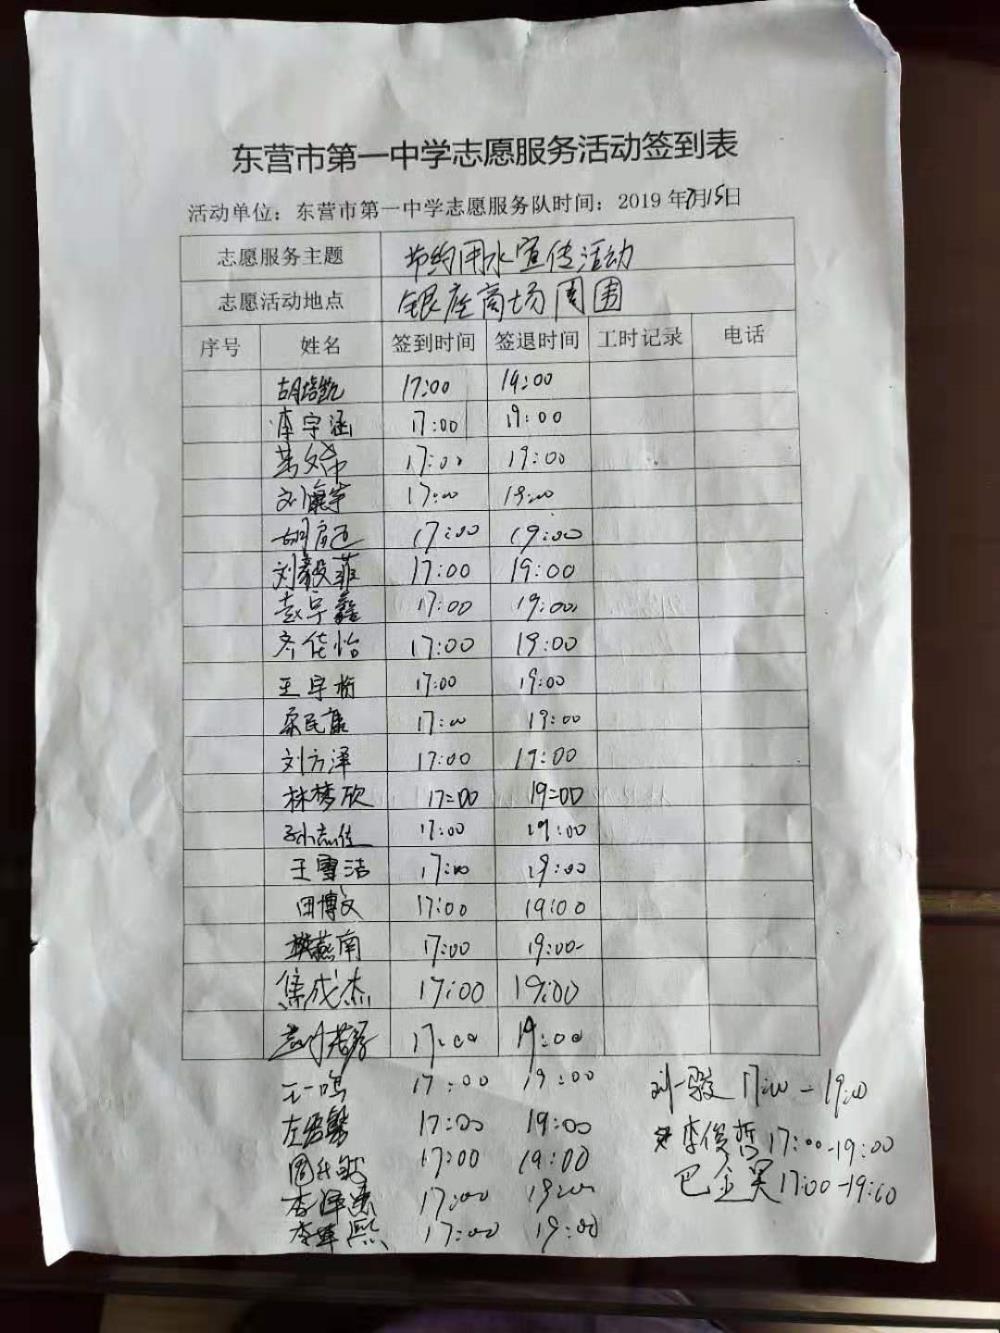 东营市第一中学志愿服务活动签到表
活动单位：东营市第一中学志愿服务队时间：2019 年7月15日
志愿服务主题 节约用水宣传活动
志愿活动地点 银座商场周围
序号 姓名 签到时间 签退时间 工时记录 电话
胡培凯 17:00 19:00
李宇涵 17:00 19:00
17:00 19:00
刘 17:00 19:00
17:00 19:00
刘毅菲 17:00 19:00
赵宇鑫 17:00 19:00
齐佳怡 17:00 19:00
王宇桁 17:00 19:00
桑民康 17:00 19:00
刘方泽 17:00 19:00
林梦欣 17:00 19:00
孙志佳 17:00 19:00
王雪洁 17:00 19:00
田博文 17:00 19:00
燕南 17:00 19:00
集成杰 17:00 19:00
17:00 19:00
王一鸣 17:00 19:00 刘一骏 17:00-19:00
左 17:00 19:00 李俊哲 17:00-19:00
周 17:00 19:00 巴金昊 17:00-19:00
李泽 17:00 19:00
李 熙 17:00 19:00